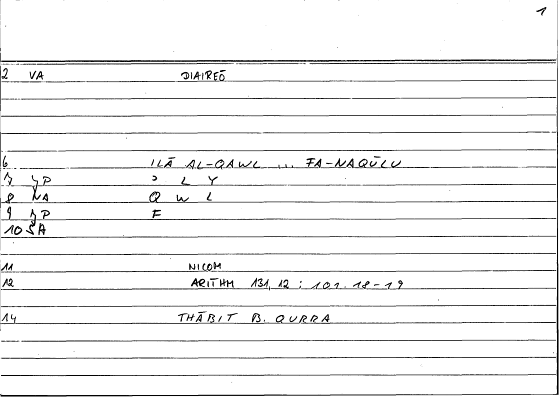 1
2 VA DIAIREŌ
6 ILĀ AL-QAWL ... FA-NAQŪLU
7 ZP ʾ L Y
8 NA Q W L
9 ZP F
10 SA
11 NICOM
12 ARITHM 131, 12 : 101. 18-19
14 THĀBIT B. QURRA